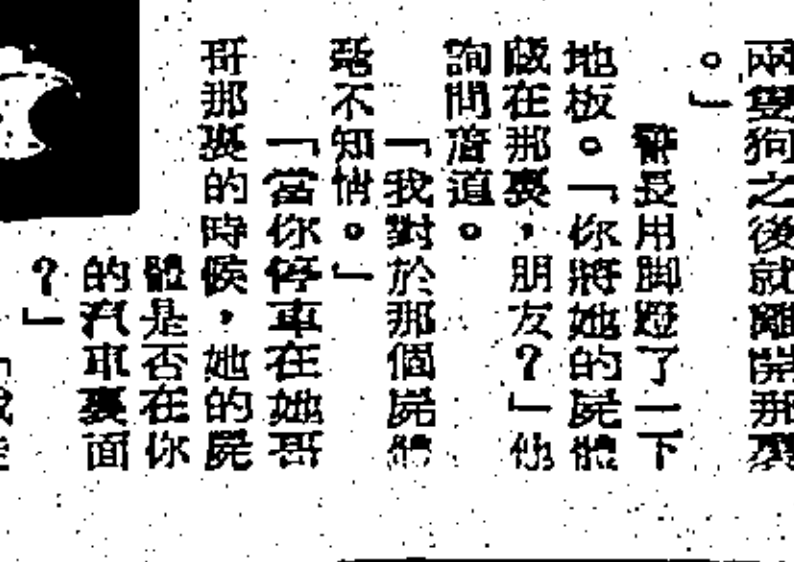 兩隻狗之後就離開那裏
。」
警長用脚蹬了一下
地板。「你將她的屍體
藏在那裏，朋友？」他
詢問着道。
「我對於那個屍體
毫不知情。」
「當你停車在她哥
哥那裏的時候，她的屍
體是否在你
的汽車裏面
？」